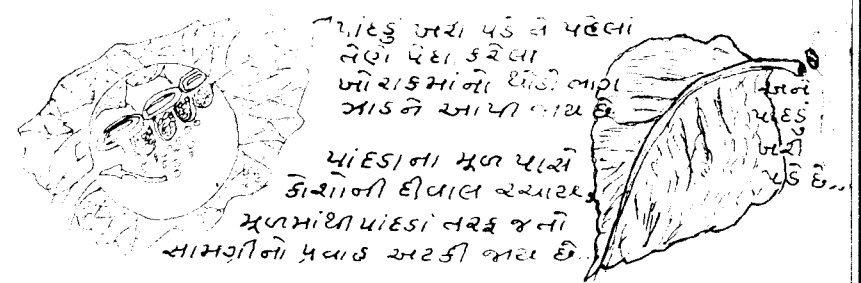 પાંદડું ખરી પડે તે પહેલાં
તેણે પેદા કરેલા
ખોરાકમાંનો થોડો ભાગ
ઝાડને આપી જાય છે
પાંદડાના મૂળ પાસે
કોશોની દીવાલ રચાય,
મૂળમાંથી પાંદડાં તરફ જતો
સામગ્રીનો પ્રવાહ અટકી જાય છે..
અને
પાંદડું
ખરી
પડે છે..